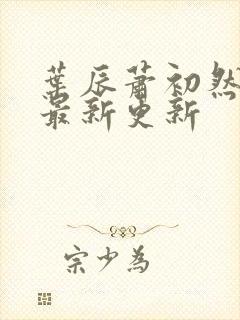 葉辰蕭初然
最新更新
宗少為